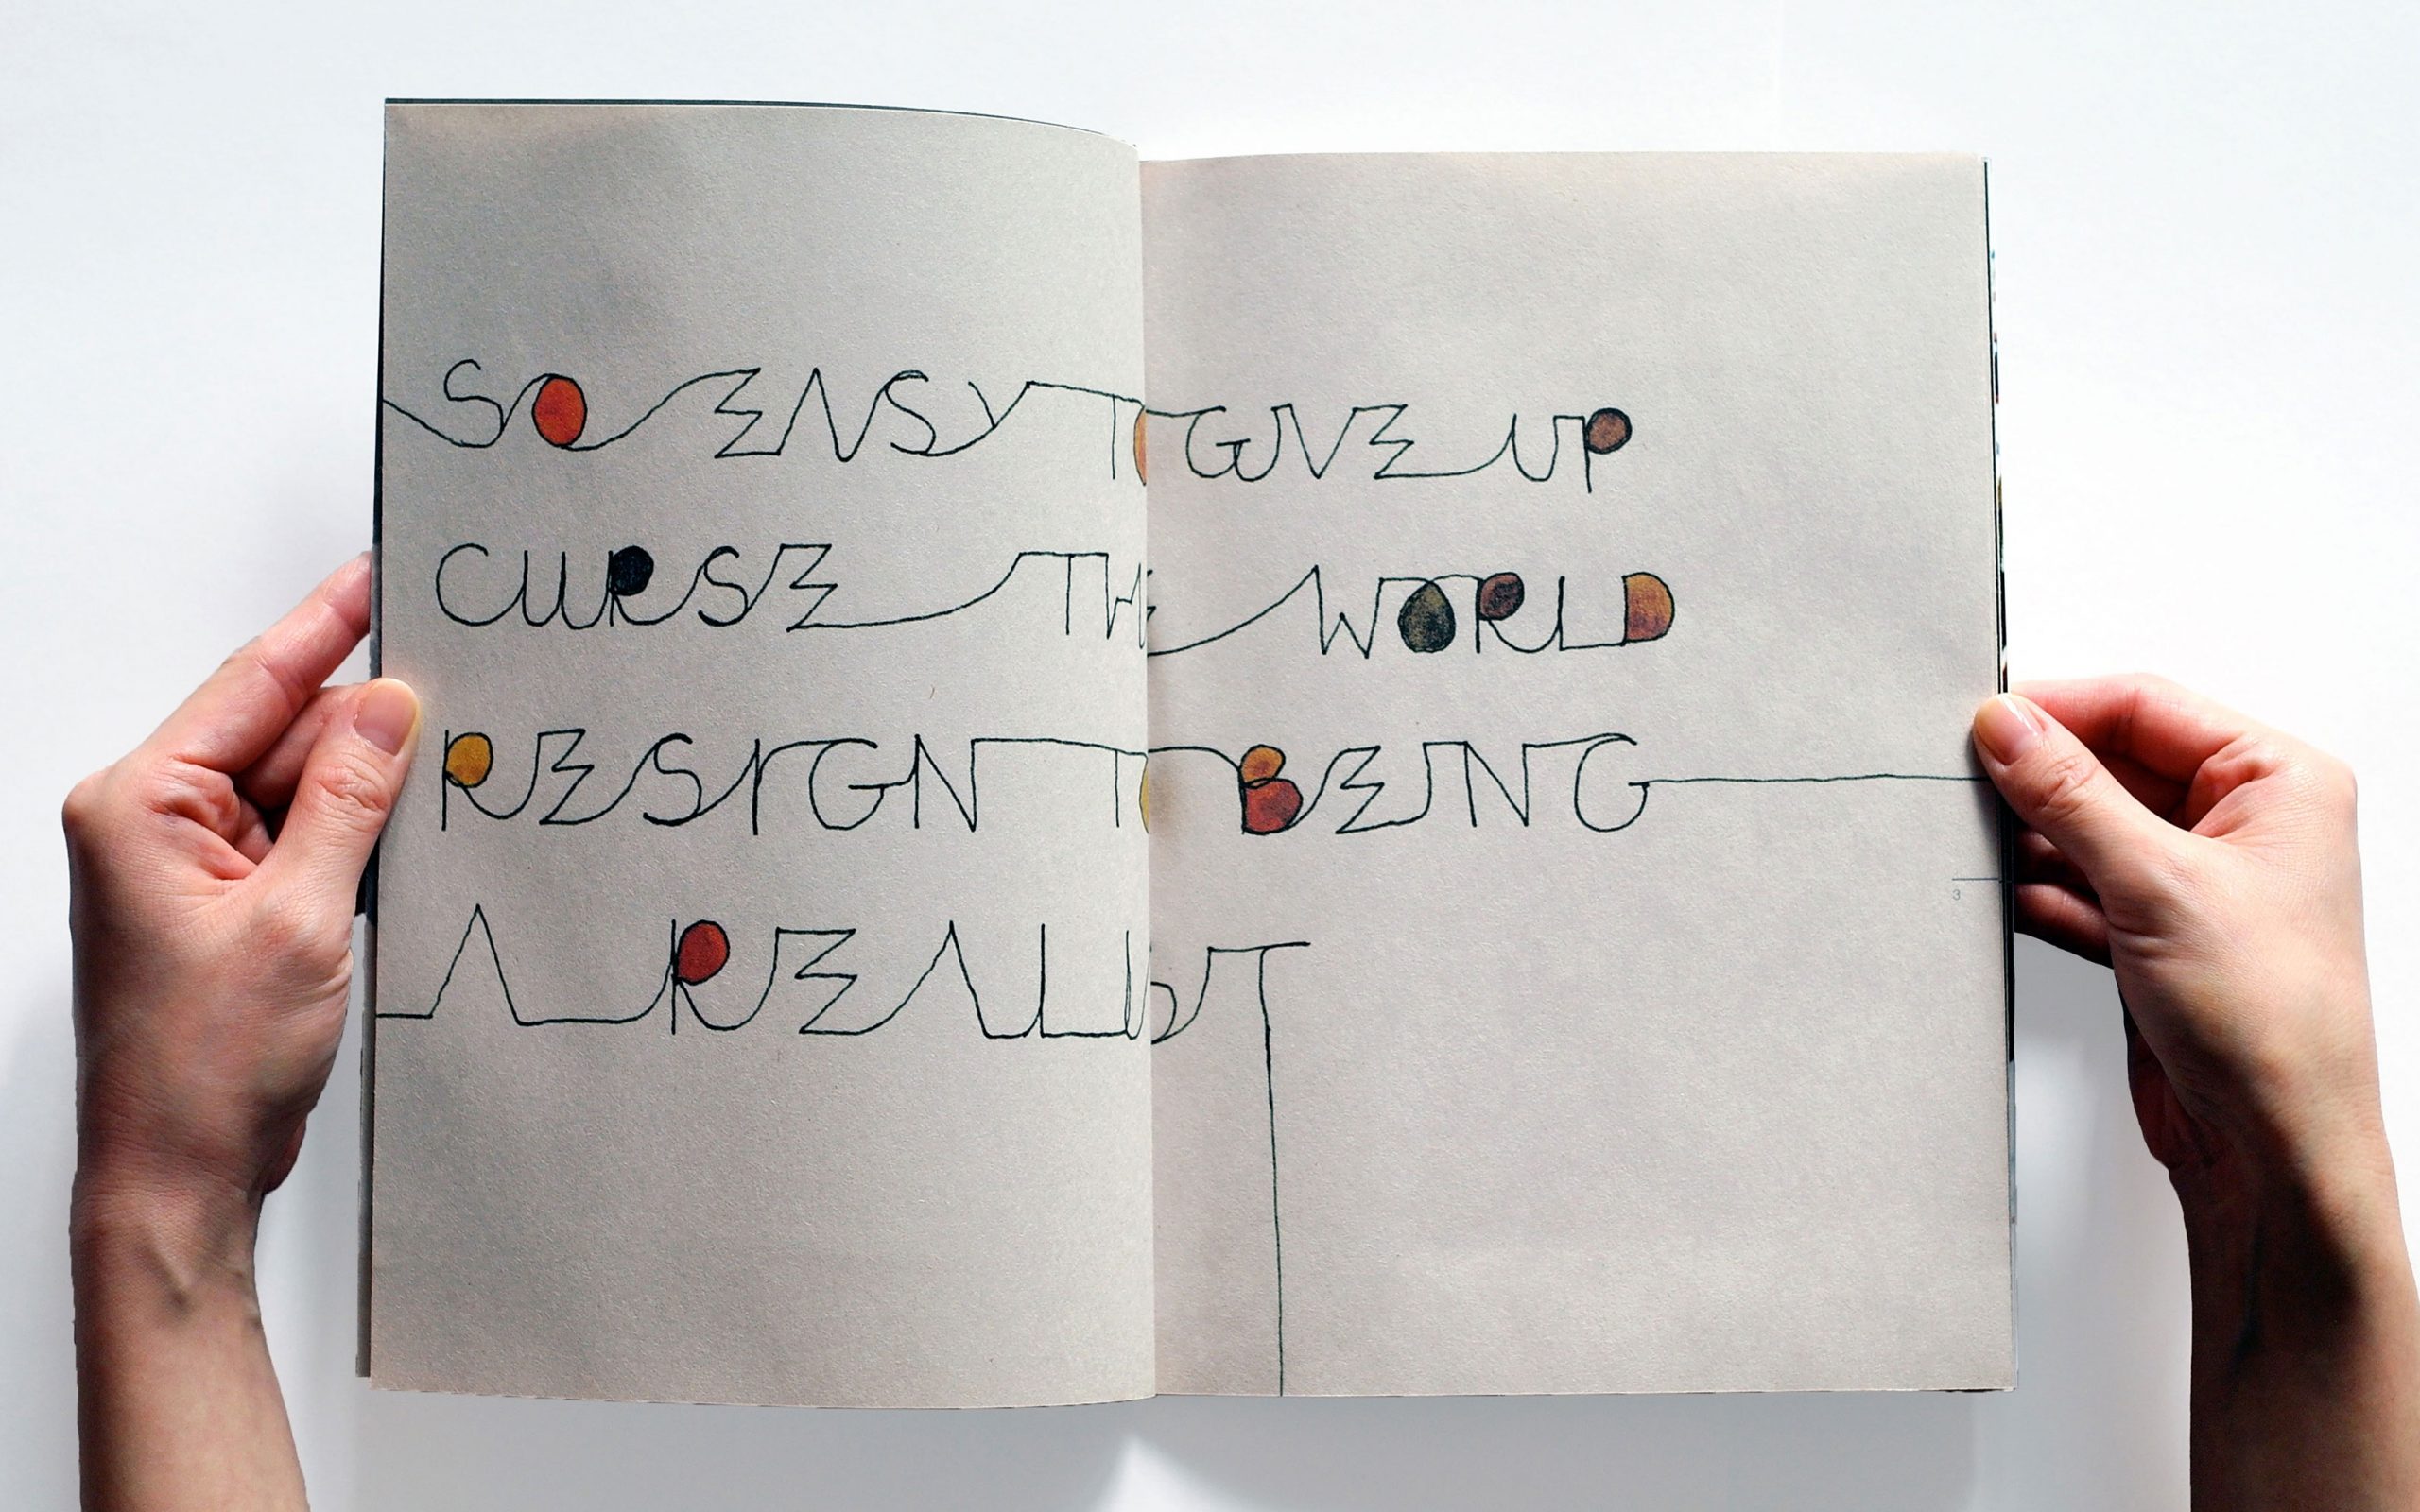 SO EASY TO GIVE UP
CURSE THE WORLD
RESIGN TO BEING
A REALIST
3